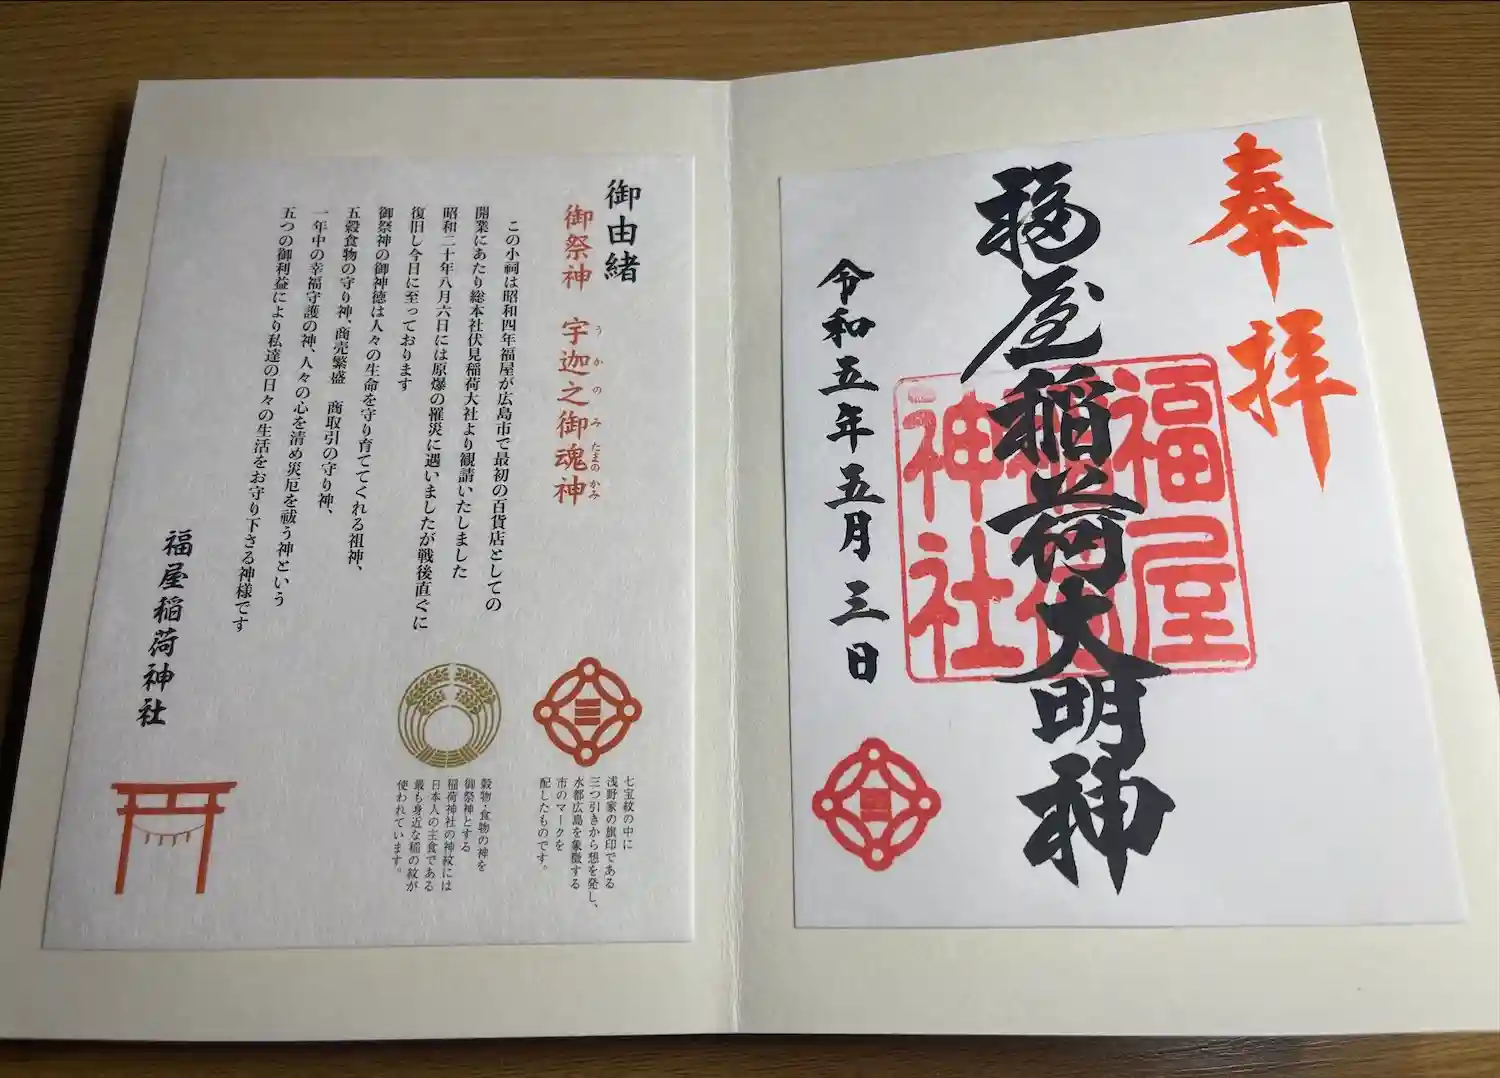 奉拝
福屋稲荷大明神
福屋
稲荷
神社
令和五年五月三日
三
御由緒
御祭神 宇迦之御魂神
うかのみたまのかみ
この小祠は昭和四年福屋が広島市で最初の百貨店としての
開業にあたり総本社伏見稲荷大社より観請いたしました
昭和二十年八月六日には原爆の罹災に遇いましたが戦後直ぐに
復旧し今日に至っております
御祭神の御神徳は人々の生命を守り育ててくれる祖神、
五穀食物の守り神、商売繁盛 商取引の守り神、
一年中の幸福守護の神、人々の心を清め災厄を祓う神という
五つの御利益により私達の日々の生活をお守り下さる神様です
福屋稲荷神社
三
七宝紋の中に
浅野家の旗印である
三つ引きから想を発し、
水都広島を象徴する
市のマークを
配したものです。
穀物・食物の神を
御祭神とする
稲荷神社の神紋には
日本人の主食である
最も身近な稲の紋が
使われています。